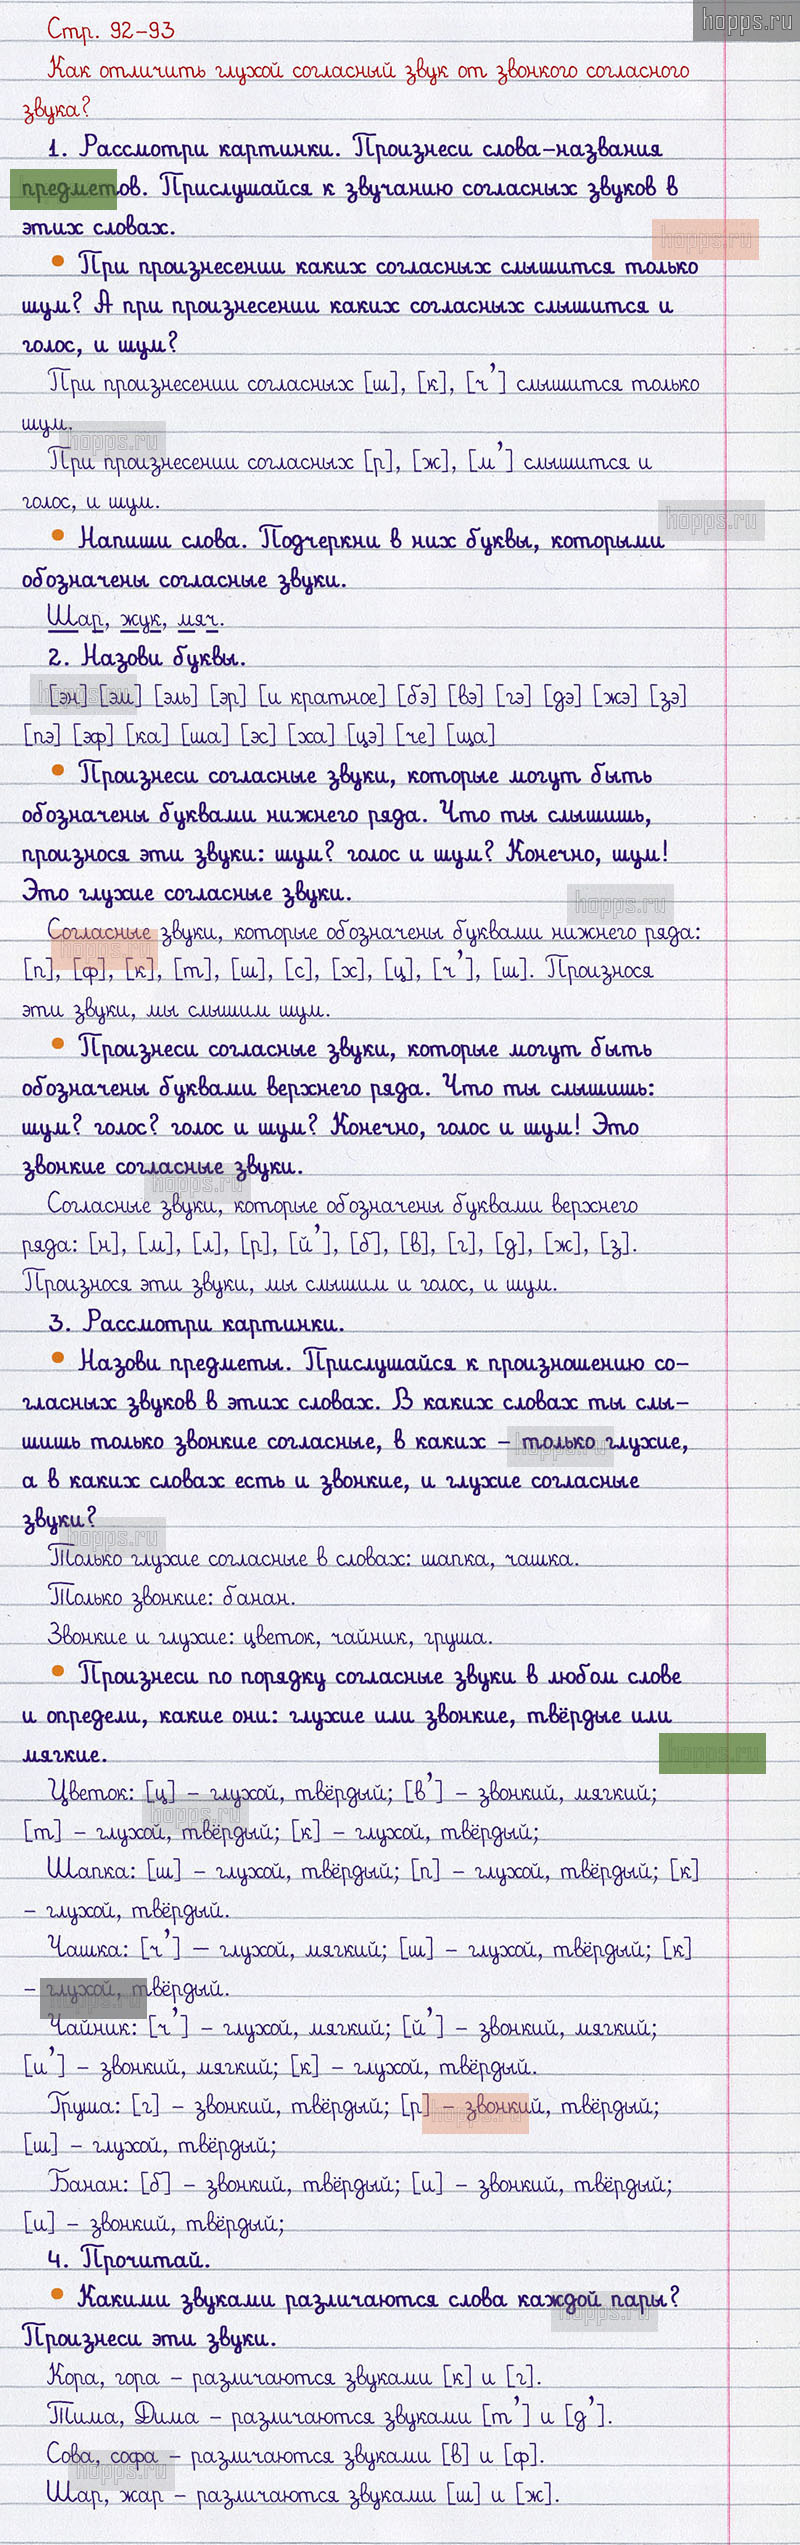 hopps.ru
Стр. 92-93
Как отличить глухой согласный звук от звонкого согласного
звука?
1. Рассмотри картинки. Произнеси слова-названия
предметов. Прислушайся к звучанию согласных звуков в
этих словах.
hopps.ru
• При произнесении каких согласных слышится только
шум? А при произнесении каких согласных слышится и
голос, и шум?
При произнесении согласных [ш], [к], [ч’] слышится только
шум.
hopps.ru
При произнесении согласных [р], [ж], [м’] слышится и
голос, и шум.
hopps.ru
• Напиши слова. Подчеркни в них буквы, которыми
обозначены согласные звуки.
Шар, жук, мяч.
2. Назови буквы.
hopps.ru
[эн] [эм] [эль] [эр] [и кратное] [бэ] [вэ] [гэ] [дэ] [жэ] [зэ]
[пэ] [эф] [ка] [ша] [эс] [ха] [цэ] [че] [ща]
• Произнеси согласные звуки, которые могут быть
обозначены буквами нижнего ряда. Что ты слышишь,
произнося эти звуки: шум? голос и шум? Конечно, шум!
Это глухие согласные звуки.
hopps.ru
Согласные звуки, которые обозначены буквами нижнего ряда:
hopps.ru
[п], [ф], [к], [т], [ш], [с], [х], [ц], [ч’], [ш]. Произнося
эти звуки, мы слышим шум.
• Произнеси согласные звуки, которые могут быть
обозначены буквами верхнего ряда. Что ты слышишь:
шум? голос? голос и шум? Конечно, голос и шум! Это
звонкие согласные звуки.
hopps.ru
Согласные звуки, которые обозначены буквами верхнего
ряда: [н], [м], [л], [р], [й’], [б], [в], [г], [д], [ж], [з].
Произнося эти звуки, мы слышим и голос, и шум.
3. Рассмотри картинки.
• Назови предметы. Прислушайся к произношению со-
гласных звуков в этих словах. В каких словах ты слы-
шишь только звонкие согласные, в каких – только глухие,
hopps.ru
а в каких словах есть и звонкие, и глухие согласные
звуки?
hopps.ru
Только глухие согласные в словах: шапка, чашка.
Только звонкие: банан.
Звонкие и глухие: цветок, чайник, груша.
• Произнеси по порядку согласные звуки в любом слове
и определи, какие они: глухие или звонкие, твёрдые или
мягкие.
hopps.ru
Цветок: [ц] – глухой, твёрдый; [в’] – звонкий, мягкий;
hopps.ru
[т] – глухой, твёрдый; [к] – глухой, твёрдый;
Шапка: [ш] – глухой, твёрдый; [п] – глухой, твёрдый; [к]
– глухой, твёрдый.
Чашка: [ч’] – глухой, мягкий; [ш] – глухой, твёрдый; [к]
– глухой, твёрдый.
hopps.ru
Чайник: [ч’] – глухой, мягкий; [й’] – звонкий, мягкий;
[н’] – звонкий, мягкий; [к] – глухой, твёрдый.
Груша: [г] – звонкий, твёрдый; [р] – звонкий, твёрдый;
hopps.ru
[ш] – глухой, твёрдый;
Банан: [б] – звонкий, твёрдый; [н] – звонкий, твёрдый;
[н] – звонкий, твёрдый;
4. Прочитай.
• Какими звуками различаются слова каждой пары?
hopps.ru
Произнеси эти звуки.
Кора, гора – различаются звуками [к] и [г].
Тима, Дима – различаются звуками [т’] и [д’].
Сова, софа – различаются звуками [в] и [ф].
hopps.ru
Шар, жар – различаются звуками [ш] и [ж].